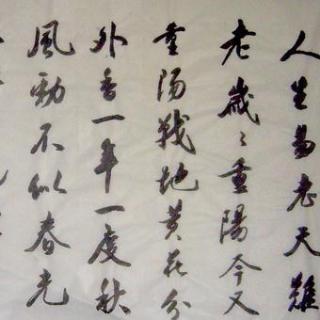 人生易老天難
老歲々重陽今又
重陽戰地黃花分
外香一年一度秋
風勁不似春光